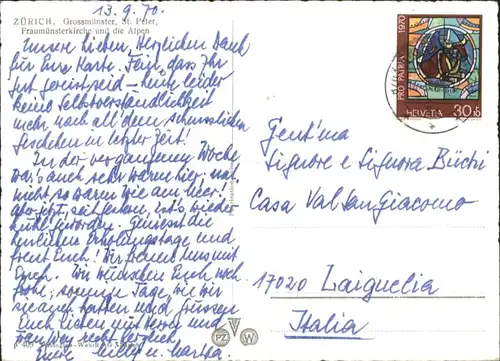 13.9.70.
ZÜRICH. Grossmünster, St. Peter,
Fraumünsterkirche und die Alpen
Unsere Lieben, Herzlichen Dank
für Eure Karte. Fein, dass Ihr
gut gereist seid - heute leider
keine Selbstverständlichkeit
mehr nach all dem scheusslichen
Geschehen in letzter Zeit!
In der vergangenen Woche
war's auch sehr warm hier, nur
nicht so warm wie am Meer!
aber jetzt, seit gestern, ist's wieder
kühl geworden. Geniesst die
herrlichen Erholungstage und
freut Euch! Wir freuen uns mit
Euch. Wir wünschen Euch noch
frohe, sonnige Tage, wie wir
sie auch hatten und grüssen
Euch lieben
herzlich
Eure Willy u. Martha
PRO PATRIA 1970
HELVETIA 30+10
Gent'ma
Signore e Signora Büchi
Casa Val San Giacomo
17020 Laigueglia
Italia
PZ W